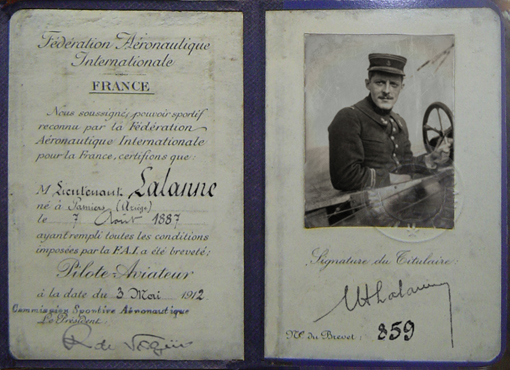 Fédération Aéronautique
Internationale
FRANCE
Nous soussigné, pouvoir sportif
reconnu par la Fédération
Aéronautique Internationale
pour la France, certifions que:
M Lieutenant Lalanne
né à Pamiers (Ariège)
le 7 Août 1887
ayant rempli toutes les conditions
imposées par la F.A.I. a été breveté:
Pilote-Aviateur
à la date du 3 Mai 1912
Commission Sportive Aéronautique
Le Président:
Signature du Titulaire:
Lalanne
No du Brevet: 859